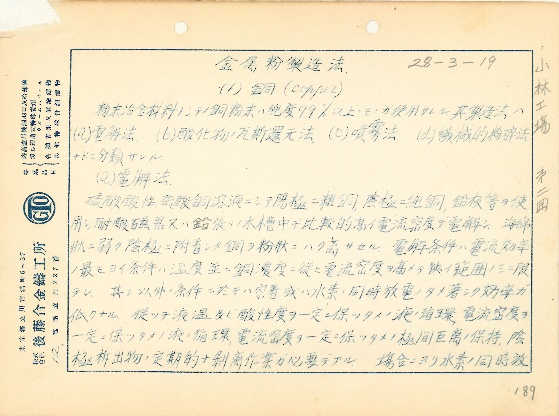 金属粉製造法
28-3-19
(1) 銅 (copper)
粉末冶金材料トシテノ銅粉末ハ純度99%以上ノモノガ使用サレル 其製造法ハ
(a)電解法 (b)酸化物ノ瓦斯還元法 (c)噴霧法 (d)機械的粉砕法
ナドニ分類サレル
(a)電解法
硫酸酸性硫酸銅溶液ニテ陽極ニ粗銅、陰極ニ純銅、鉛板等ヲ使
用シ耐酸磁器又ハ鉛張リノ木槽中デ比較的高イ電流密度デ電解シ 海綿
状ニ弱ク陰極ニ附着シタ銅ヲ粉状ニ 電解条件ハ電流効率
ノ最モヨイ条件ハ温度並ニ銅濃度ニ従ヒ電流密度ヲ高メタ狭イ範囲ノミニ限
ラレ 其レ以外ノ条件ニ於テハ密着或ハ水素ノ同時放電ノタメ著シク効率ガ
低クナル 従ツテ液温及ビ酸性度ヲ一定ニ保ツタメノ液ノ循環、電流密度ヲ
一定ニ保ツタメノ液ノ循環、電流密度ヲ一定ニ保ツタメノ極間距離ノ保持、陰
極析出物ノ定期的ナ剥離作業ガ必要デアル 場合ニヨリ水素ノ同時放
189
小林工場 第二回
GTO
後藤合金鋳工所
東京都立川市富士見町6-37
電話立川 727番